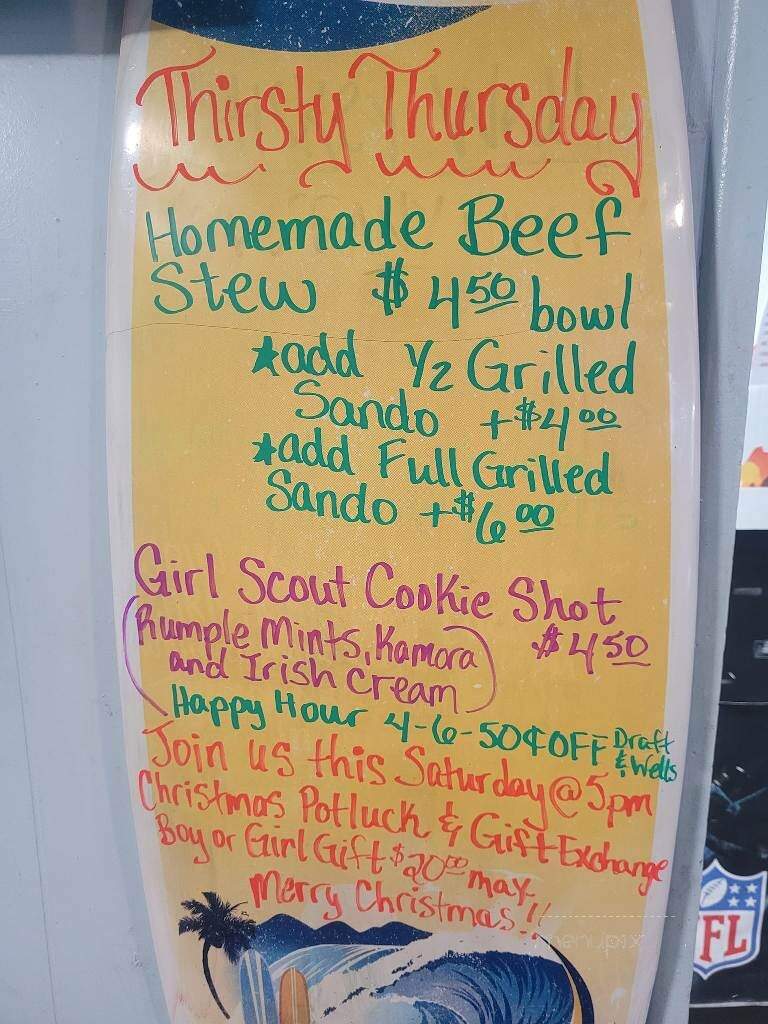 Thirsty Thursday
Homemade Beef
Stew $4.50 bowl
★add 1/2 Grilled
Sando +$4.00
★add Full Grilled
Sando +$6.00
Girl Scout Cookie Shot
(Rumple Mints, Kamora $4.50
and Irish Cream)
Happy Hour 4-6-50¢ OFF Draft
& Wells
Join us this Saturday @ 5pm
Christmas Potluck & Gift Exchange
Boy or Girl Gift $20.00 max.
Merry Christmas!!
menupix
NFL